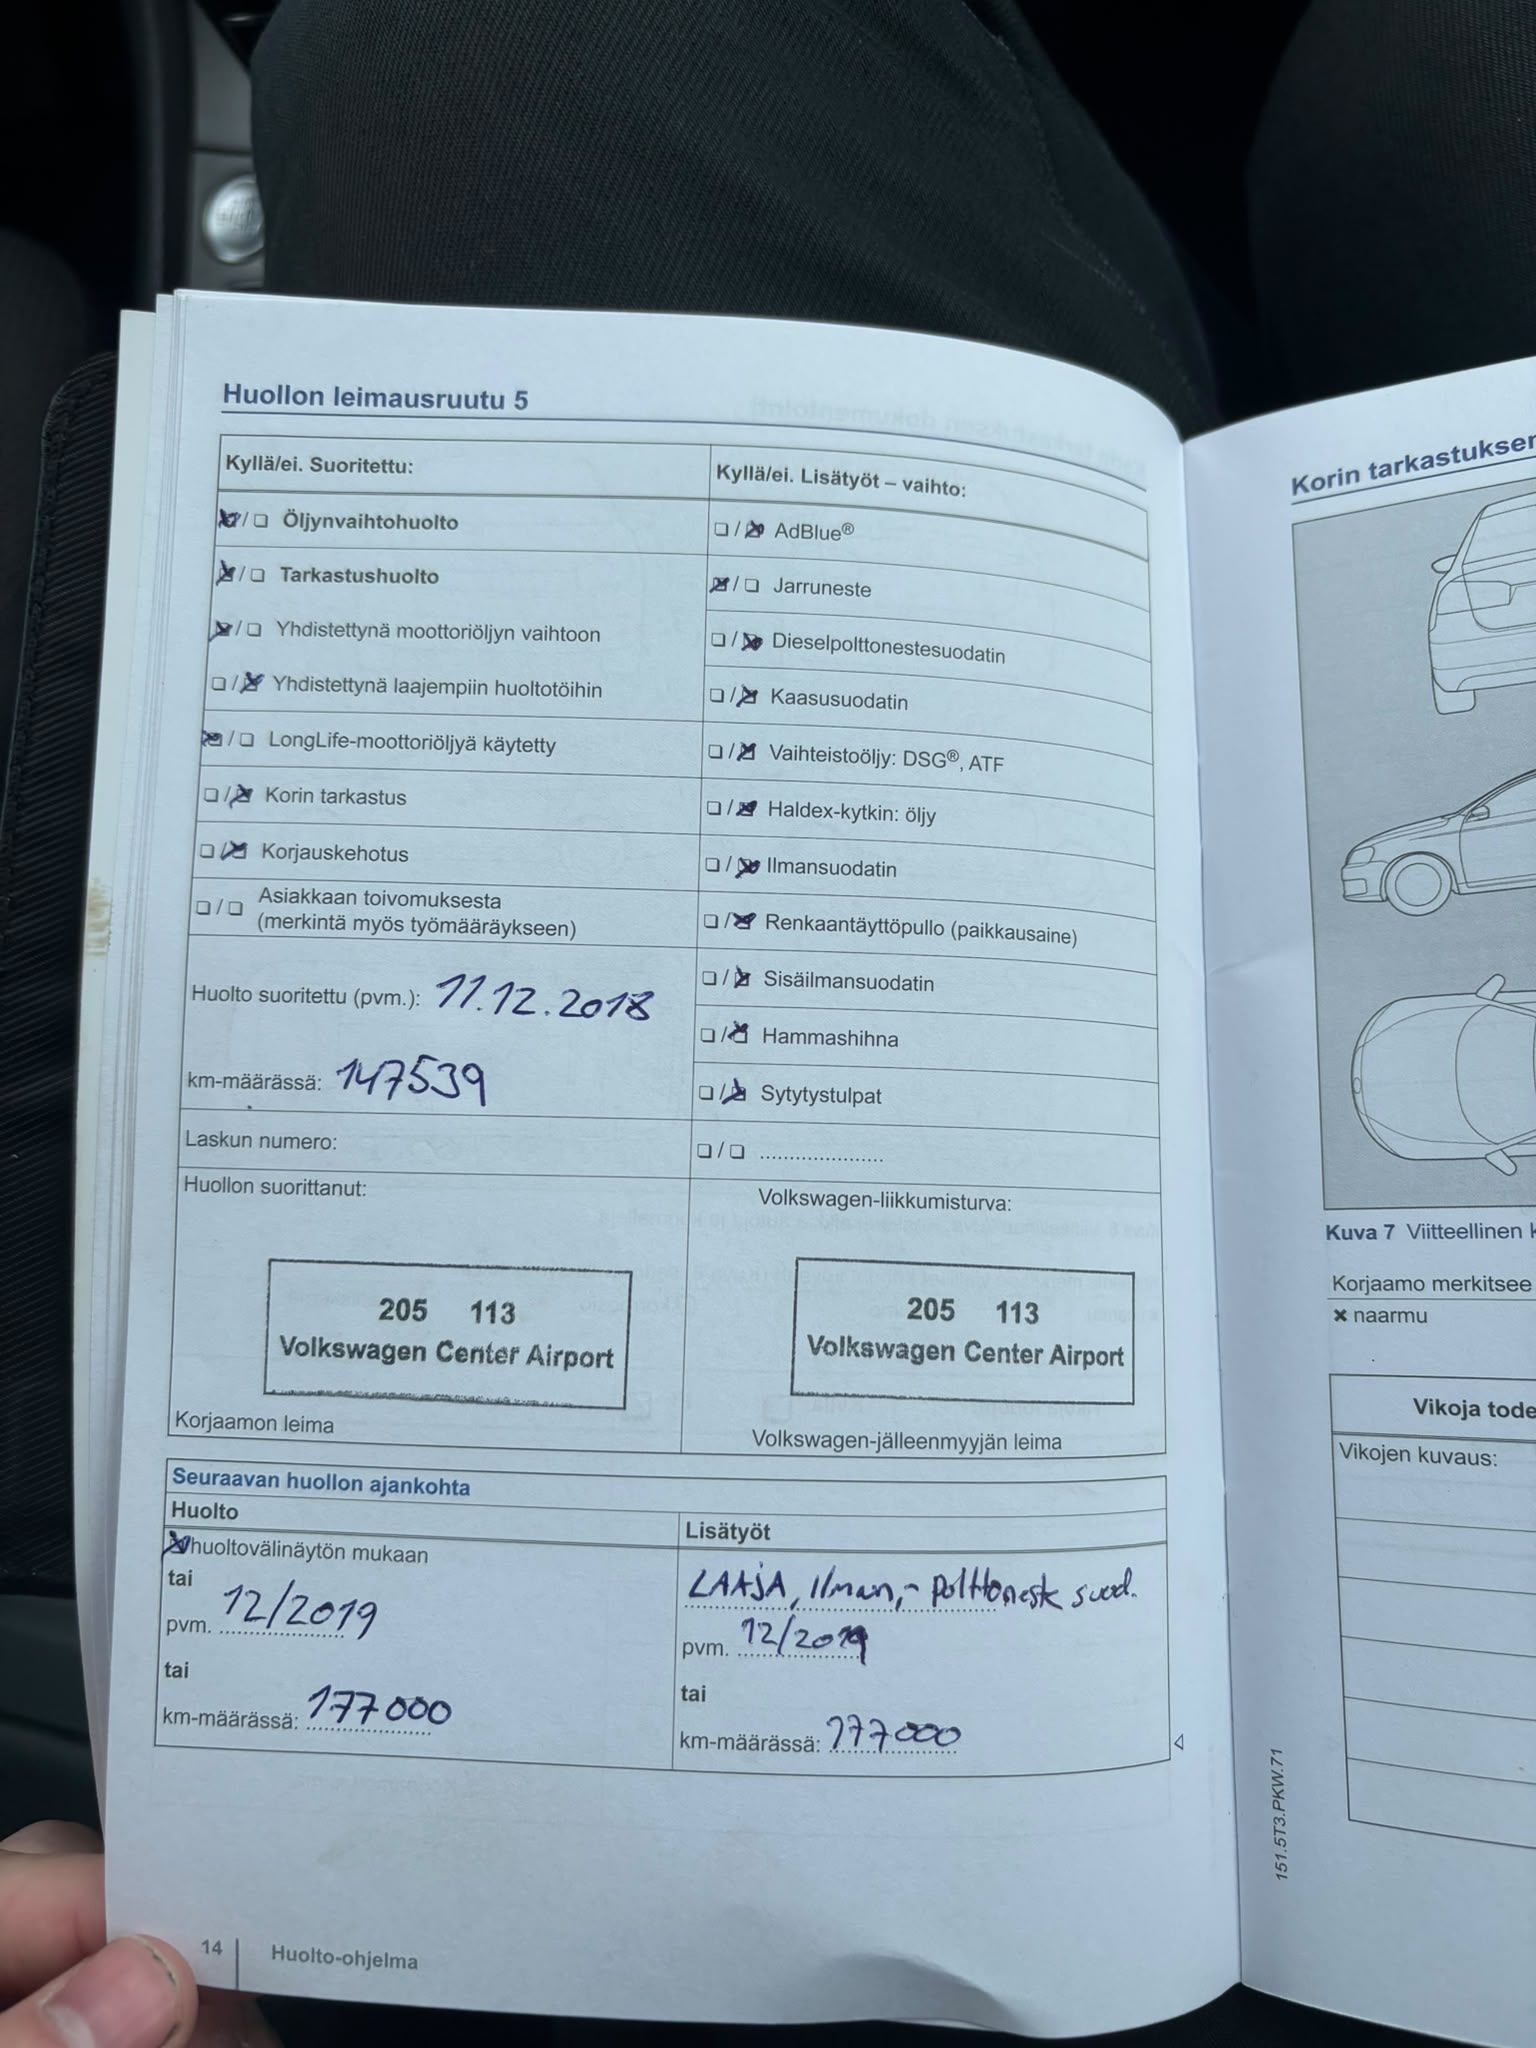 Huollon leimausruutu 5
Kyllä/ei. Suoritettu:
Öljynvaihtohuolto
Tarkastushuolto
Yhdistettynä moottoriöljyn vaihtoon
Yhdistettynä laajempiin huoltotöihin
LongLife-moottoriöljyä käytetty
Korin tarkastus
Korjauskehotus
Asiakkaan toivomuksesta
(merkintä myös työmääräykseen)
Huolto suoritettu (pvm.): 11.12.2018
km-määrässä: 147539
Laskun numero:
Huollon suorittanut:
205 113
Volkswagen Center Airport
Korjaamon leima
Kyllä/ei. Lisätyöt – vaihto:
AdBlue®
Jarruneste
Dieselpolttonestesuodatin
Kaasusuodatin
Vaihteistoöljy: DSG®, ATF
Haldex-kytkin: öljy
Ilmansuodatin
Renkaantäyttöpullo (paikkausaine)
Sisäilmansuodatin
Hammashihna
Sytytystulpat
Volkswagen-liikkumisturva:
205 113
Volkswagen Center Airport
Volkswagen-jälleenmyyjän leima
Seuraavan huollon ajankohta
Huolto
huoltovälinäytön mukaan
tai
pvm. 12/2019
tai
km-määrässä: 177000
Lisätyöt
LAAJA, Ilman,- polttoneste suod.
pvm. 12/2019
tai
km-määrässä: 177000
14 Huolto-ohjelma
Korin tarkastuksen
Kuva 7 Viitteellinen
Korjaamo merkitsee
× naarmu
Vikoja tode
Vikojen kuvaus:
151.5T3.PKW.71